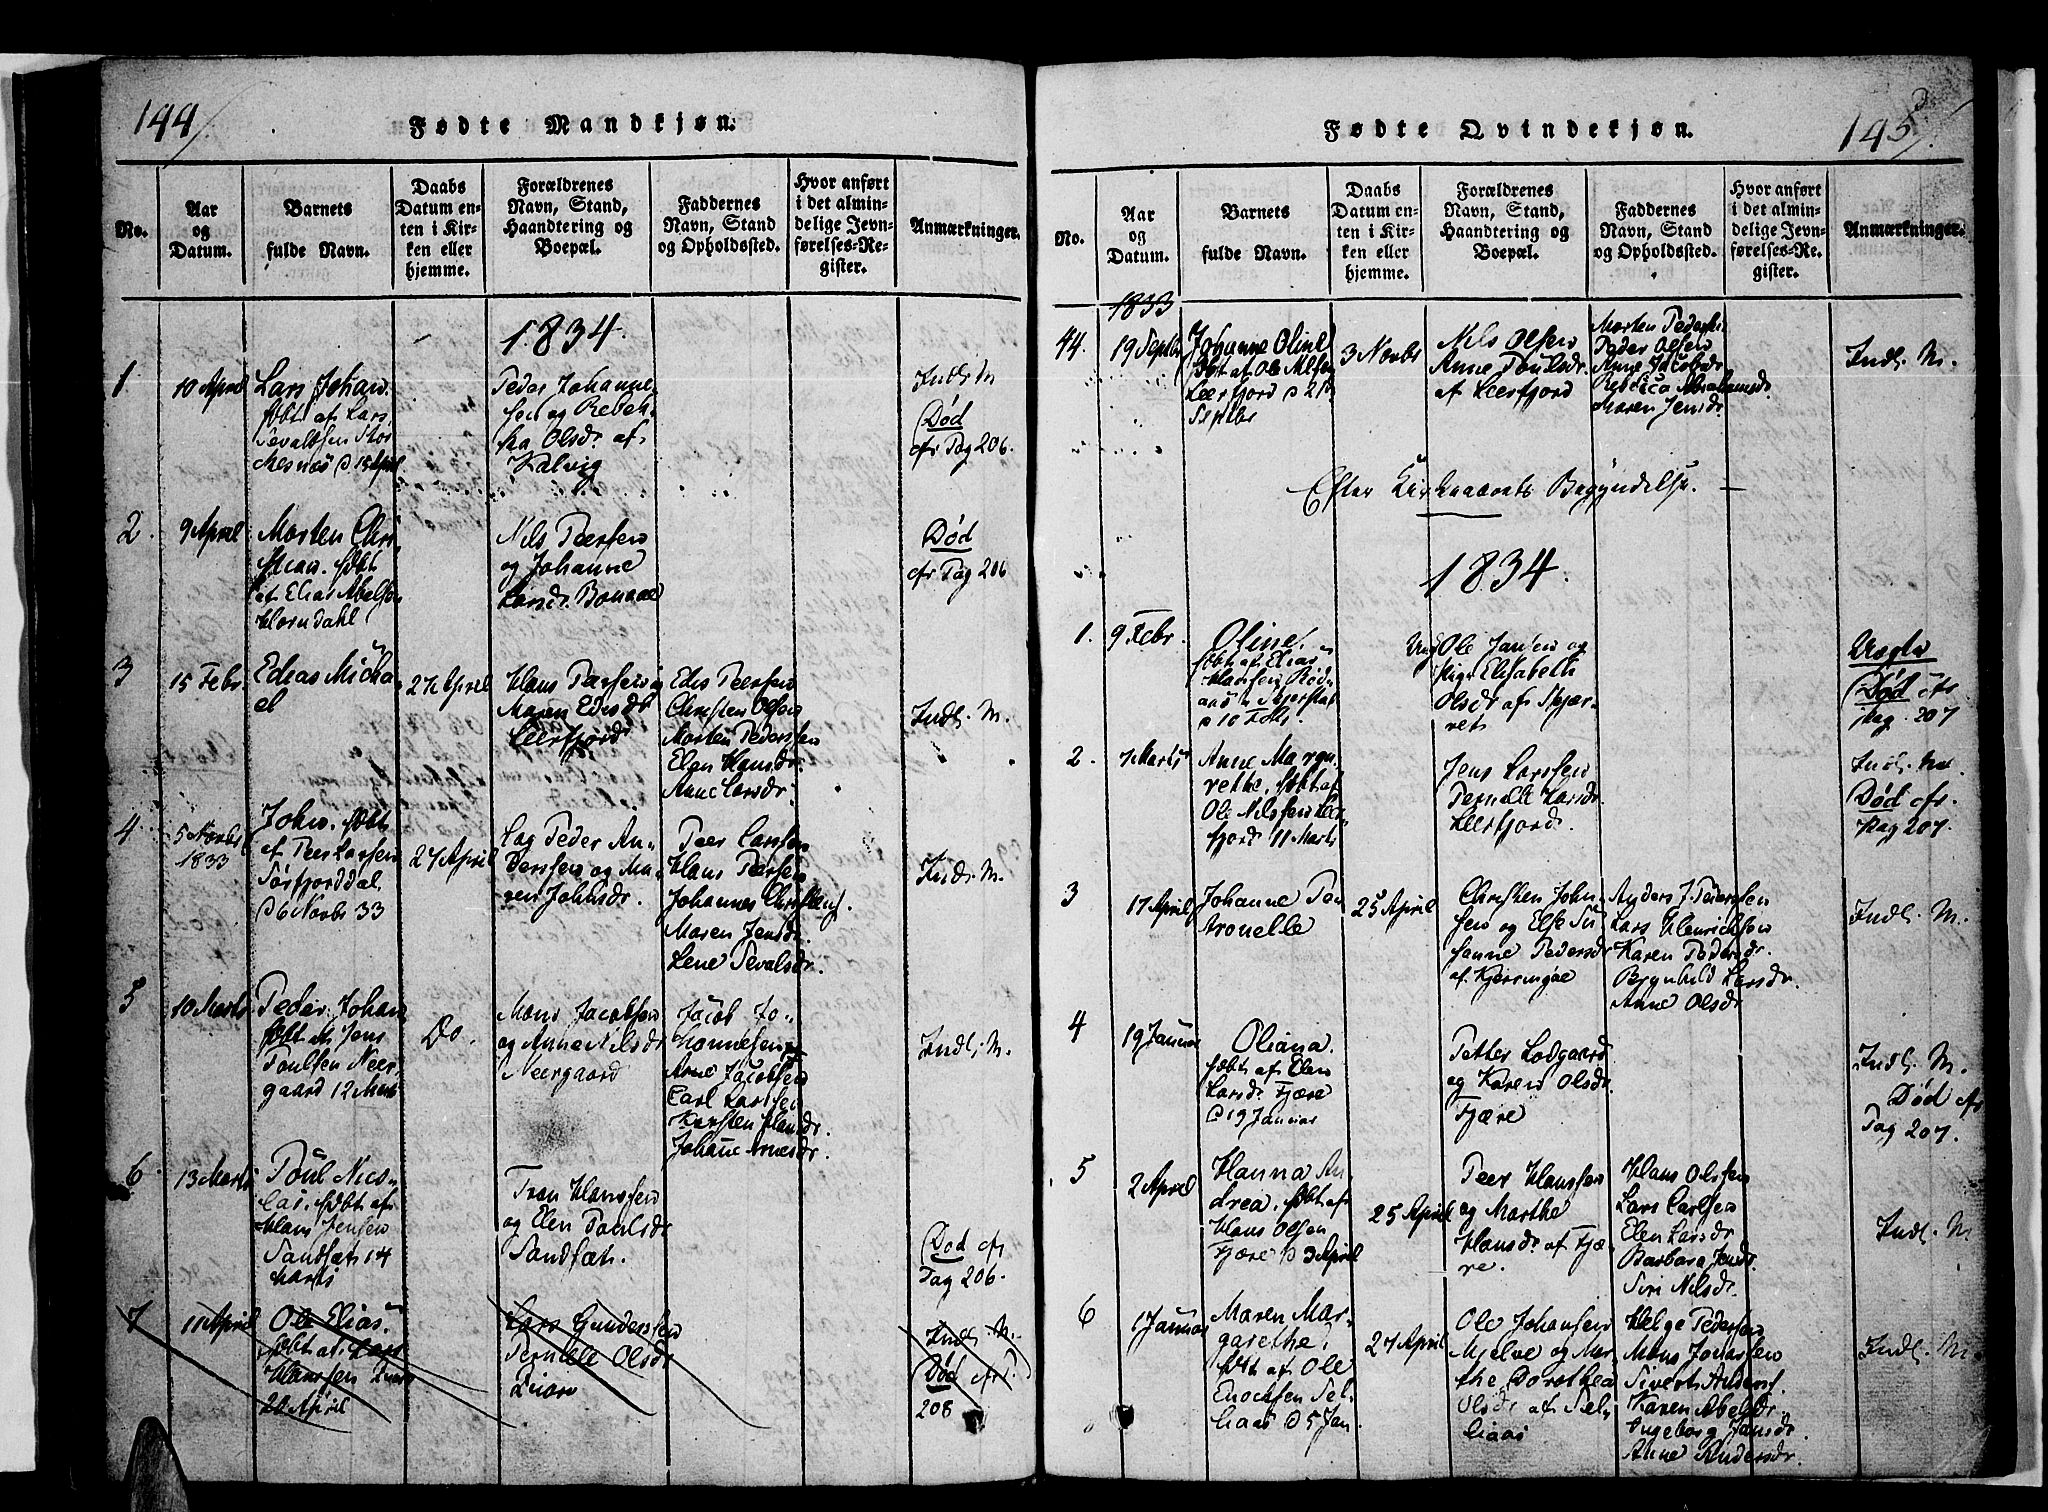 144/
Fødte Mandkjøn.
No.
Aar
og
Datum.
Barnets
fulde Navn.
Daabs
Datum en-
ten i Kir-
ken eller
hjemme.
Forældrenes
Navn, Stand,
Haandtering og
Boepæl.
Faddernes
Navn, Stand
og Opholdssted.
Hvor anført
i det almin-
delige Jevn-
førelses-Re-
gister.
Anmærkninger.
1834.
1
10 April
Lars Johan
døbt af Lars
Tevaltsen
15 April
Peder Johanne
sen og Rebek
ka Olsdr. af
Kalvig
Indl. M
Død
cfr Pag 206.
2.
9 April
Morten Chri
stian. døbt
af Elias Abelsen
Horndahl
Nils Peersen
og Johanne
Larsdr.
Død
cfr Pag 206
3
15 Febr.
Edias Micha
el
27 April
Hans
Maren
Leerfjord
Edis Peersen
Christen Olsen
Morten Pedersen
Elen Hansdr.
Anne Larsdr.
Indl. M.
4
5 Novbr
1833
John. døbt
af Peer Larsen
Sørfjorddal
D 6 Novbr 33
27 April
Peder An
dersen og Ma
ren Johnsdr.
Peer Larssen
Hans Peersen
Johannes
Maren Jensdr.
Lene Tevalsdr.
Indl. M.
5
10 Marts
Peder Johan
døbt af Jens
Poulsen Neer
gaard 12 Marts
Do.
Mons Jacobsen
og Anne Nilsdr
Neergaard
Jacob Jo-
hannesen
Arne Jacobsen
Carl Larssen
Karsten Hansdr.
Johanne Arnesdr.
Indl. M.
6
13 Marts
Poul Nico
lai. døbt af
Hans Jensen
Sandsæt 14
Marts
Hanssen
og Elen Poulsdr
Sandsæt.
Død cfr
Pag 206.
7
11 April
Ole Elias
døbt af Lars
Hanssen
20 April
Lars Gunderssen
Pernille Olsdr
Indl. M.
Død cfr P.
208
145/
Fødte Qvindekjøn.
No.
Aar
og
Datum.
Barnets
fulde Navn.
Daabs
Datum en-
ten i Kir-
ken eller
hjemme.
Forældrenes
Navn, Stand,
Haandtering og
Boepæl.
Faddernes
Navn, Stand
og Opholdssted.
Hvor anført
i det almin-
delige Jevn-
førelses-Re-
gister.
Anmærkninger.
1833
44.
19 Septbr
Johanne Oline
døbt af Ole
Leerfjord D 21
Septbr
3 Novbr
Nils Olsen
Anne Poulsdr
af Leerfjord
Morten
Peder Olsen
Anne Jacobsdr
Rebecca Abrahamsdr.
Maren Jensdr
Indl. M.
Efter Kirkeaarets Begyndelse.
1834.
1.
9 Febr.
Oline.
døbt af Elias
Hansen
D 10 Febr.
Ung Ole Jansen og
Pige Elisabeth
Olsdr af Skjær-
vet
Uægte
Død cfr
Pag. 207
2.
7 Marts
Anne Marga
rethe. døbt af
Ole Nilssen Leer
fjord 11 Marts
Jens Larssen
Pernille Larsdr.
Leerfjord.
Indl. M.
Død cfr.
Pag 207.
3
17 April
Johanne Pe
tronelle
25 April
Christen John
sen og Else Su
sanne Pedersdr
af Kjerringøe
Anders J. Pedersen
Lars Henrichsen
Karen Pedersdr.
Brynhild Larsdr.
Anne Olsdr
Indl. M.
4
19 Januar
Oliana.
døbt af Elen
Larsdr Fjære
D 19 Januar
Petter Lodgaard
og Karen Olsdr
Fjære
Indl. M.
Død cfr
Pag 207.
5
2 April
Hanna An
drea. døbt af
Hans Olsen
Fjære D 3 April
25 April
Peer Hanssen
og Marthe
Hansdr. af Fjæ
re.
Hans Olssen
Lars Carlsen
Elen Larsdr
Barbara Jensdr.
Siri Nilsdr.
Indl. M
6
1 Januar
Maren Mar-
garethe.
døbt af Ole
Enochsen Sel
liaas D 5 Jan
27 April
Ole Johansen
Mjelve og Mar
the Dorothea
Olsdr af Sel
liaas
Helge Pedersen
Mons Jonassen
Sivert Anders.
Karen Abelsdr.
Ingeborg Jansdr
Anne Andersdr.
Indl. M.